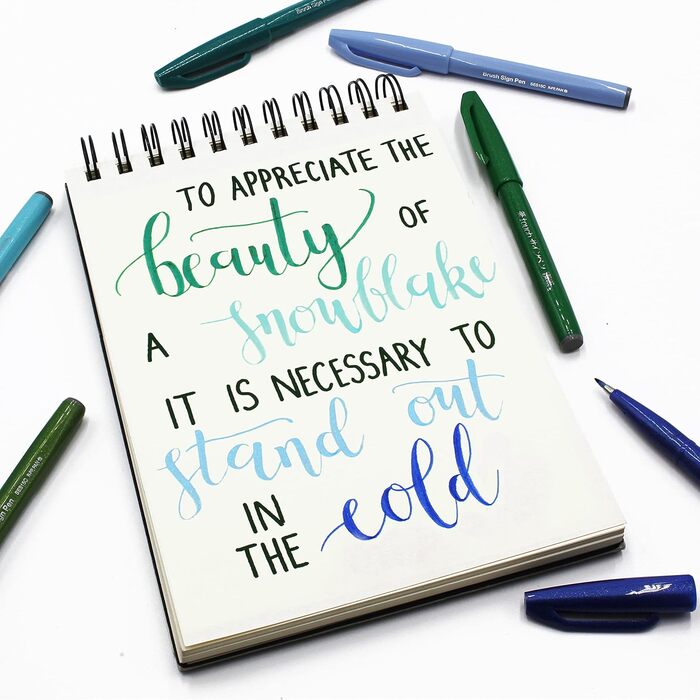 TO APPRECIATE THE
beauty OF
A snowflake
IT IS NECESSARY TO
stand out
IN cold
THE
Brush Sign Pen
Brush Sign Pen SES15C
Sign Pen SES15C